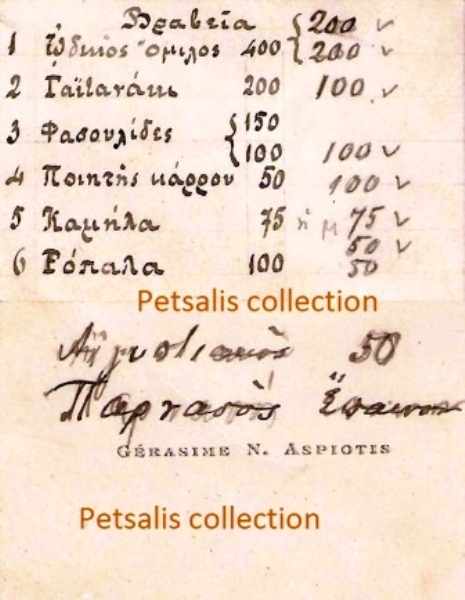 Βραβεῖα { 200 ✓
1 Ὠδικὸς Ὅμιλος 400 { 200 ✓
2 Γαϊτανάκι 200 100 ✓
3 Φασουλίδες { 150
{ 100 100 ✓
4 Ποιητὴς κάρρου 50 100 ✓
5 Καμήλα 75 ἢ 75 ✓
50 ✓
6 Ρόπαλα 100 50
Petsalis collection
50
Παρνασὸς Ἔπαινον
GÉRASIME N. ASPIOTIS
Petsalis collection